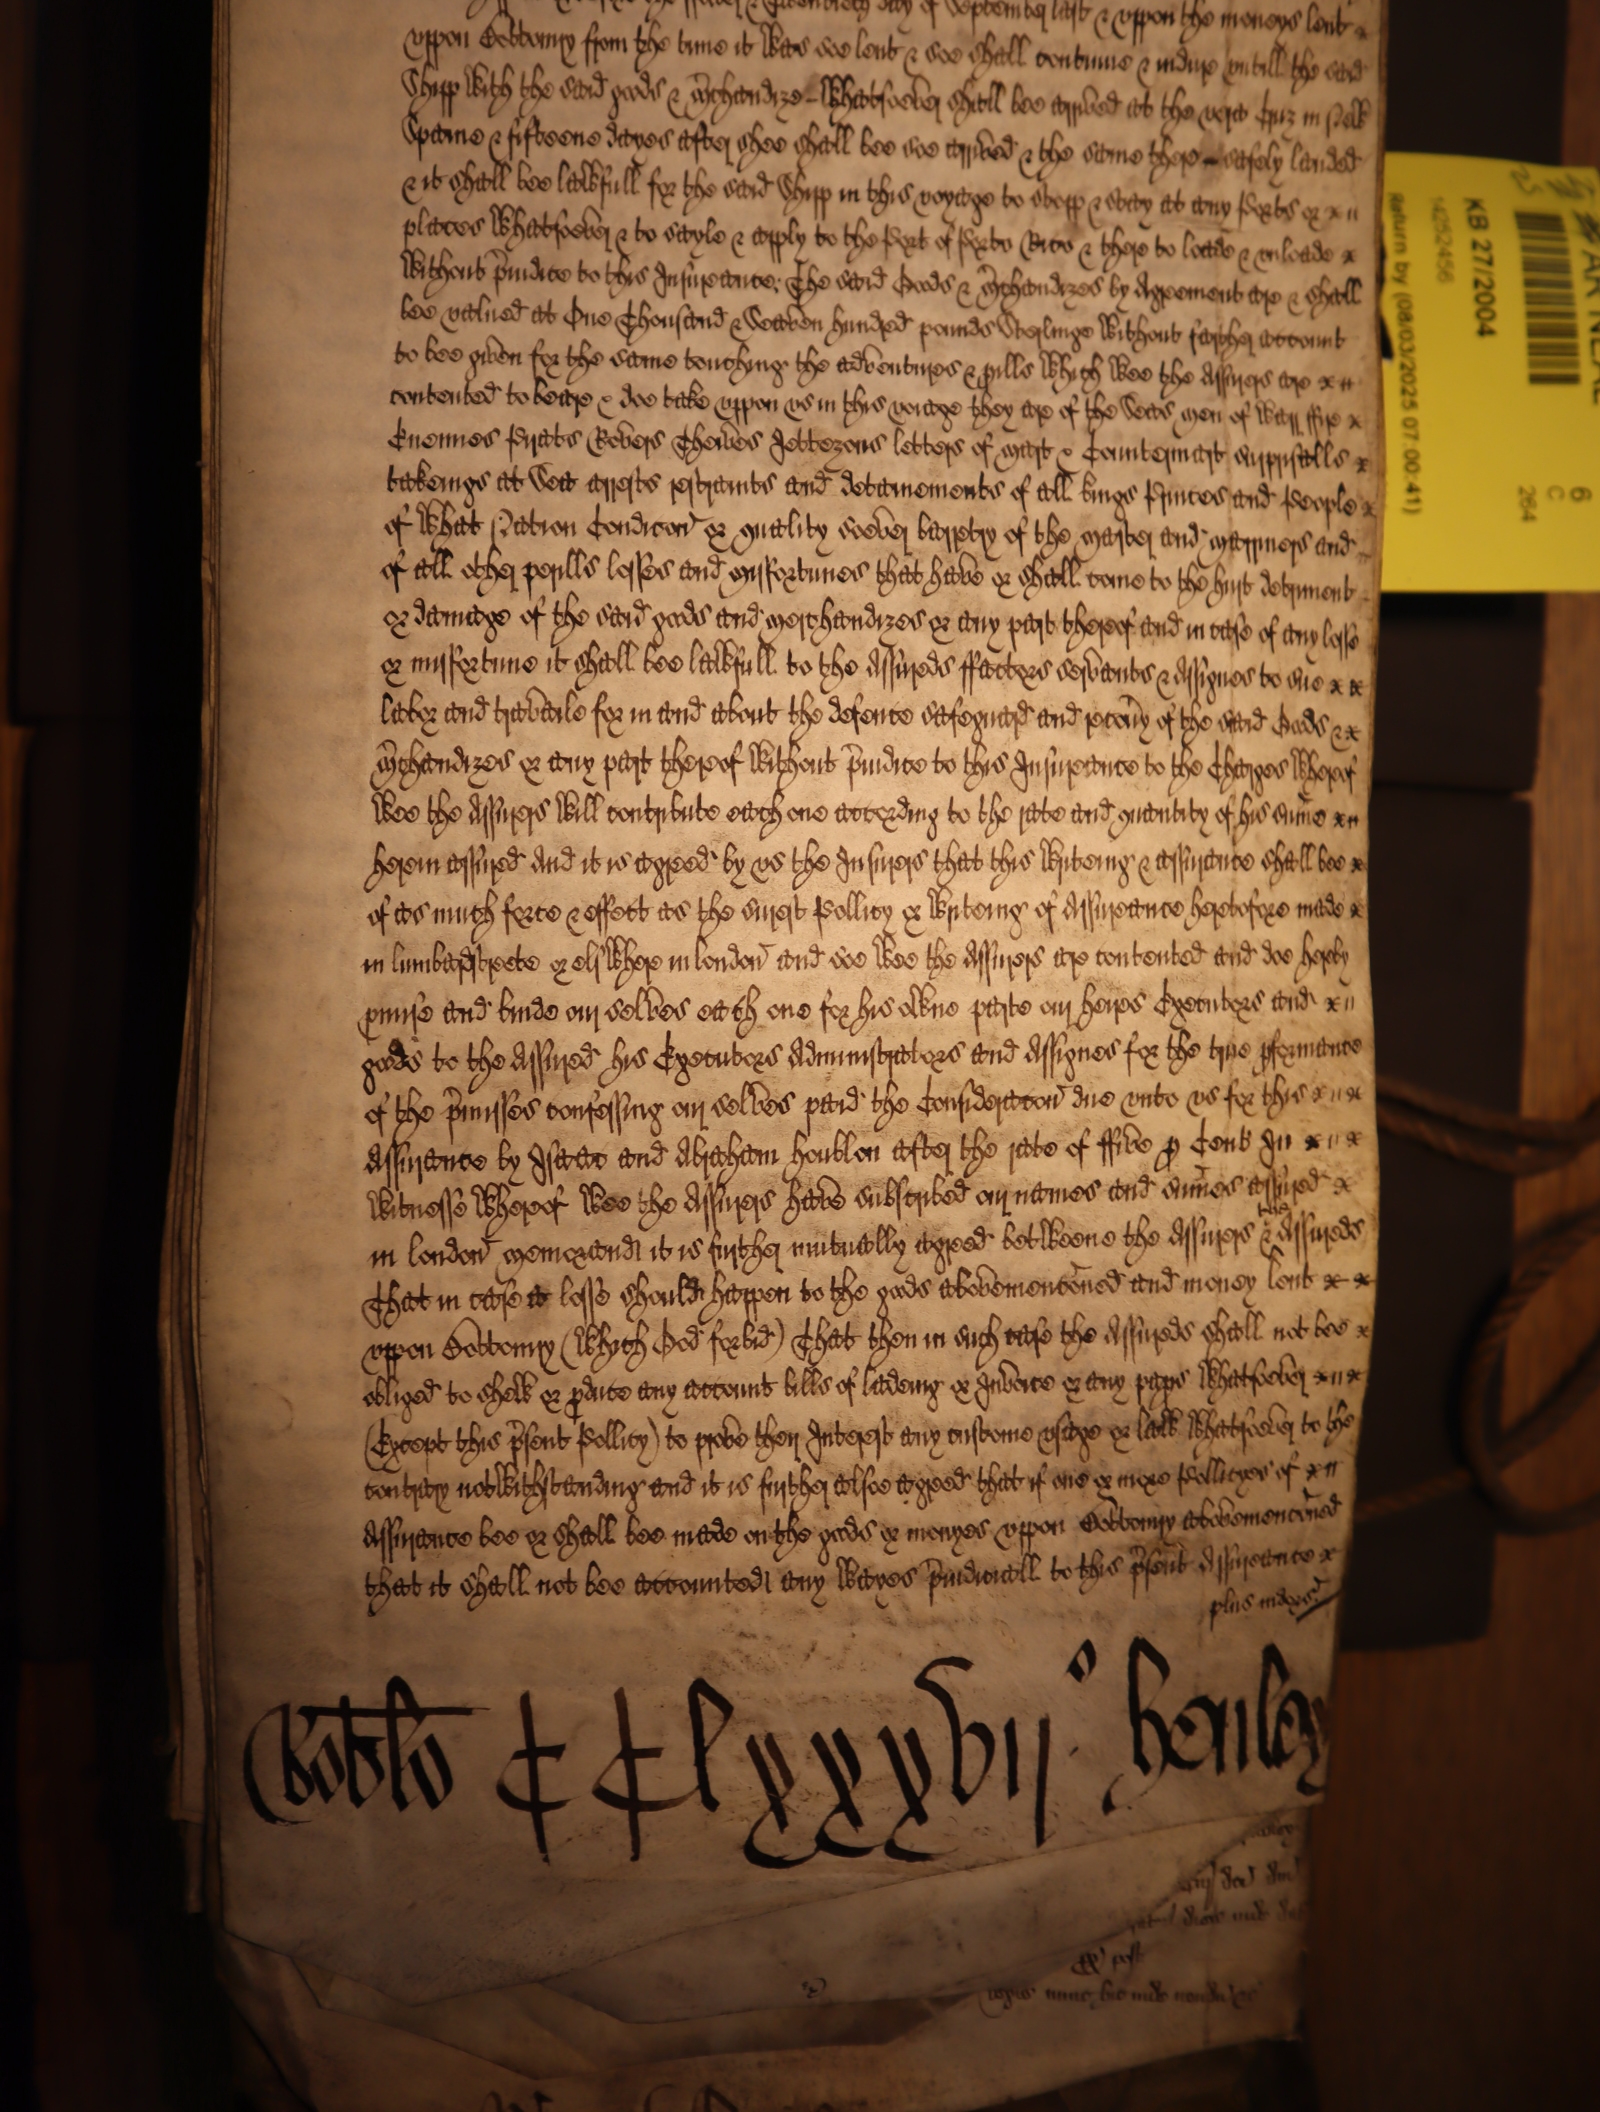 day of September last & vppon the moneys lent
vppon Bottomry from the time it was soe lent & soe shall continue & indure vntill the said
Shipp with the said goods & m̃chandize whatsoever shall bee arrived at the vera Cruz in New
Spaine & fifteene dayes after shee shall bee soe arrived & the same there safely landed
& it shall bee lawfull for the said Shipp in this voyage to stopp & stay at any Ports or
places whatsoever & to sayle & apply to the Port of Porto Rico & there to loade & vnloade
without p̃iudice to this Insurance; The said Goods & m̃chandizes by Agreement are & shall
bee valued at One Thousand & Seaven hundred pounds Sterlinge without farther account
to bee given for the same touching the adventures & perills which wee the Assurers are
contented to beare & doe take vppon vs in this voiage they are of the Seas men of warr ffire
Enemies Pirats Rovers Theives Jettezons letters of mart & Countermart surprisalls
takeings at Sea arrests restraints and detainements of all kings Princes and People
of what Nation Condicon̄ or quality soever barretry of the master and marriners and
of all other perills losses and misfortunes that have or shall come to the hurt detriment
or damage of the said goods and merchandizes or any part thereof and in case of any losse
or misfortune it shall bee lawfull to the Assureds ffactors servants & Assignes to sue
labor and travaile for in and about the defence safeguard and recov̄y of the said Goods &
m̃chandizes or any part thereof without p̃iudice to this Insurance to the Charges whereof
wee the Assurers will contribute each one according to the rate and quantity of his sum̄e
herein assured And it is agreed by vs the Insurers that this writeing & assurance shall bee
of as much force & effect as the surest Pollicy or writeing of Assurance heretofore made
in lumbardstreete or elswhere in london and soe wee the Assurers are contented and doe hereby
p̱mise and binde our selves each one for his owne parte our heires Executors and
goods to the Assured his Executors Administrators and Assignes for the true p̱formance
of the p̃misses confessing our selves paid the Consideracon̄ due vnto vs for this
Assurance by Isaac and Abraham houblon after the rate of ffive p̱ Cent In
witnesse whereof wee the Assurers have subscribed our names and sum̄es assured
in london memorand it is further mutually agreed betweene the Assurers & the Assureds
That in case a losse should happen to the goods abovemenc̄oned and money lent
vppon Bottomry (which God forbid) That then in such case the Assureds shall not bee
obliged to shew or p̱duce any account bills of ladeing or Invoice or any pap̱s whatsoever
(Except this p̃sent Pollicy) to prove their Interest any custome vsage or law whatsoever to the
contrary notwithstanding and it is further alsoe agreed that if one or more Pollicyes of
Assurance bee or shall bee made on the goods or moneyes vppon Bottomry abovemenc̄oned
that it shall not bee accounted any wayes p̃iudiciall to this p̃sent Assurance
plus indors̄
Rotlo CClxxxvii° henley
KB 27/2004
Return by (08/03/2025 07:00:41)
6
C
264